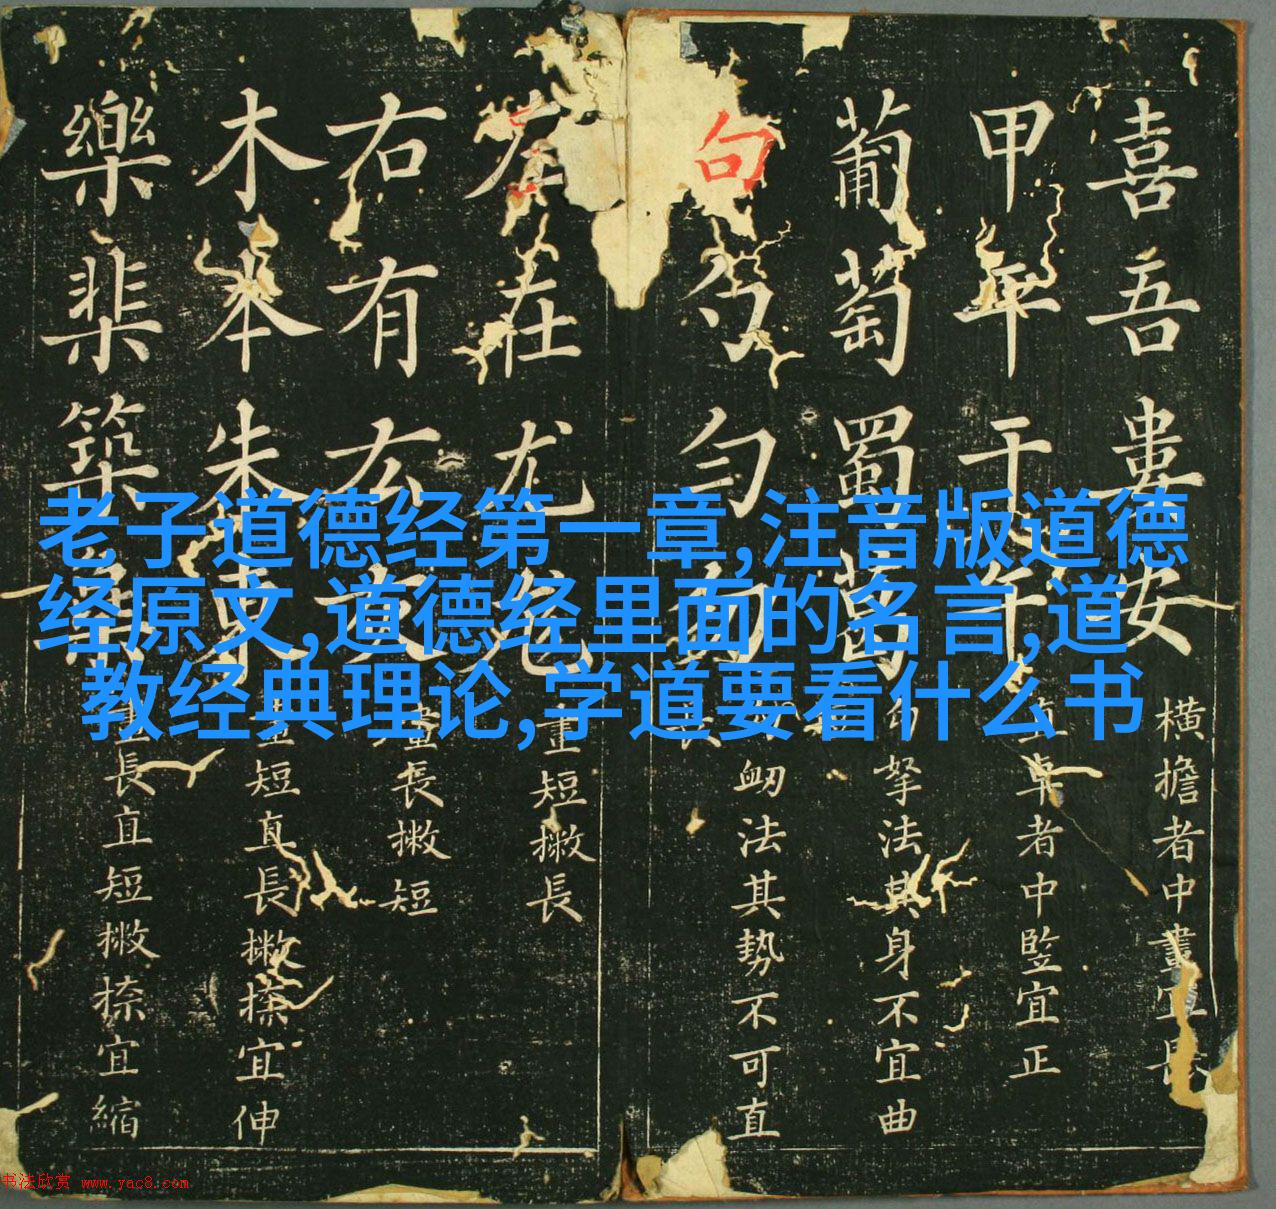 老子道德经第一章,注音版道德
经原文,道德经里面的名言,道
教经典理论,学道要看什么书
喜吾婁
横擔者中畫宜長
甲平干午
卓者中竪宜正
葡萄蜀葛
勾拏法其身不宜曲
句勺勻勿
衂法其勢不可直
左在尤
畫短撇長
右有厷友
畫長撇短
木本朱東
短直長撇捺宜伸
樂棐築
長直短撇捺宜縮
书法欣赏 www.yac8.com